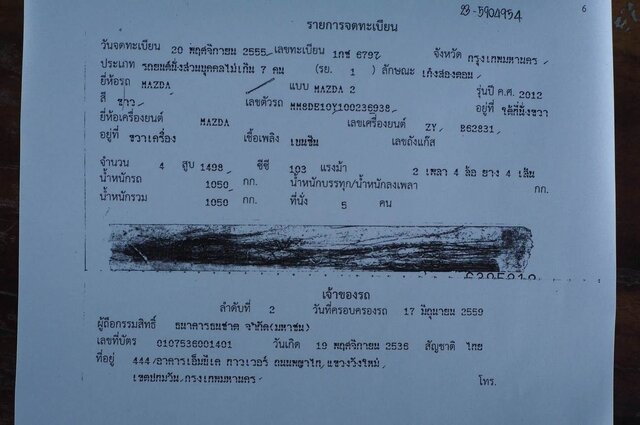 23-5904954
6
รายการจดทะเบียน
วันจดทะเบียน 20 พฤศจิกายน 2555 เลขทะเบียน 1กช 6797 จังหวัด กรุงเทพมหานคร
ประเภท รถยนต์นั่งส่วนบุคคลไม่เกิน 7 คน (รย. 1 ) ลักษณะ เก๋งสองตอน
ยี่ห้อรถ MAZDA แบบ MAZDA 2 รุ่นปี ค.ศ. 2012
สี ขาว เลขตัวรถ MM8DE10Y100236938 อยู่ที่ ใต้ที่นั่งขวา
ยี่ห้อเครื่องยนต์ MAZDA เลขเครื่องยนต์ ZY, 862831
อยู่ที่ ขวาเครื่อง เชื้อเพลิง เบนซิน เลขถังแก๊ส
จำนวน 4 สูบ 1498 ซีซี 103 แรงม้า 2 เพลา 4 ล้อ ยาง 4 เส้น
น้ำหนักรถ 1050 กก. น้ำหนักบรรทุก/น้ำหนักลงเพลา กก.
น้ำหนักรวม 1050 กก. ที่นั่ง 5 คน
เจ้าของรถ
ลำดับที่ 2 วันที่ครอบครองรถ 17 มิถุนายน 2559
ผู้ถือกรรมสิทธิ์ ธนาคารธนชาต จำกัด(มหาชน)
เลขที่บัตร 0107536001401 วันเกิด 19 พฤศจิกายน 2536 สัญชาติ ไทย
ที่อยู่ 444/อาคารเอ็มบีเค ทาวเวอร์ ถนนพญาไท, แขวงวังใหม่,
เขตปทุมวัน, กรุงเทพมหานคร โทร.